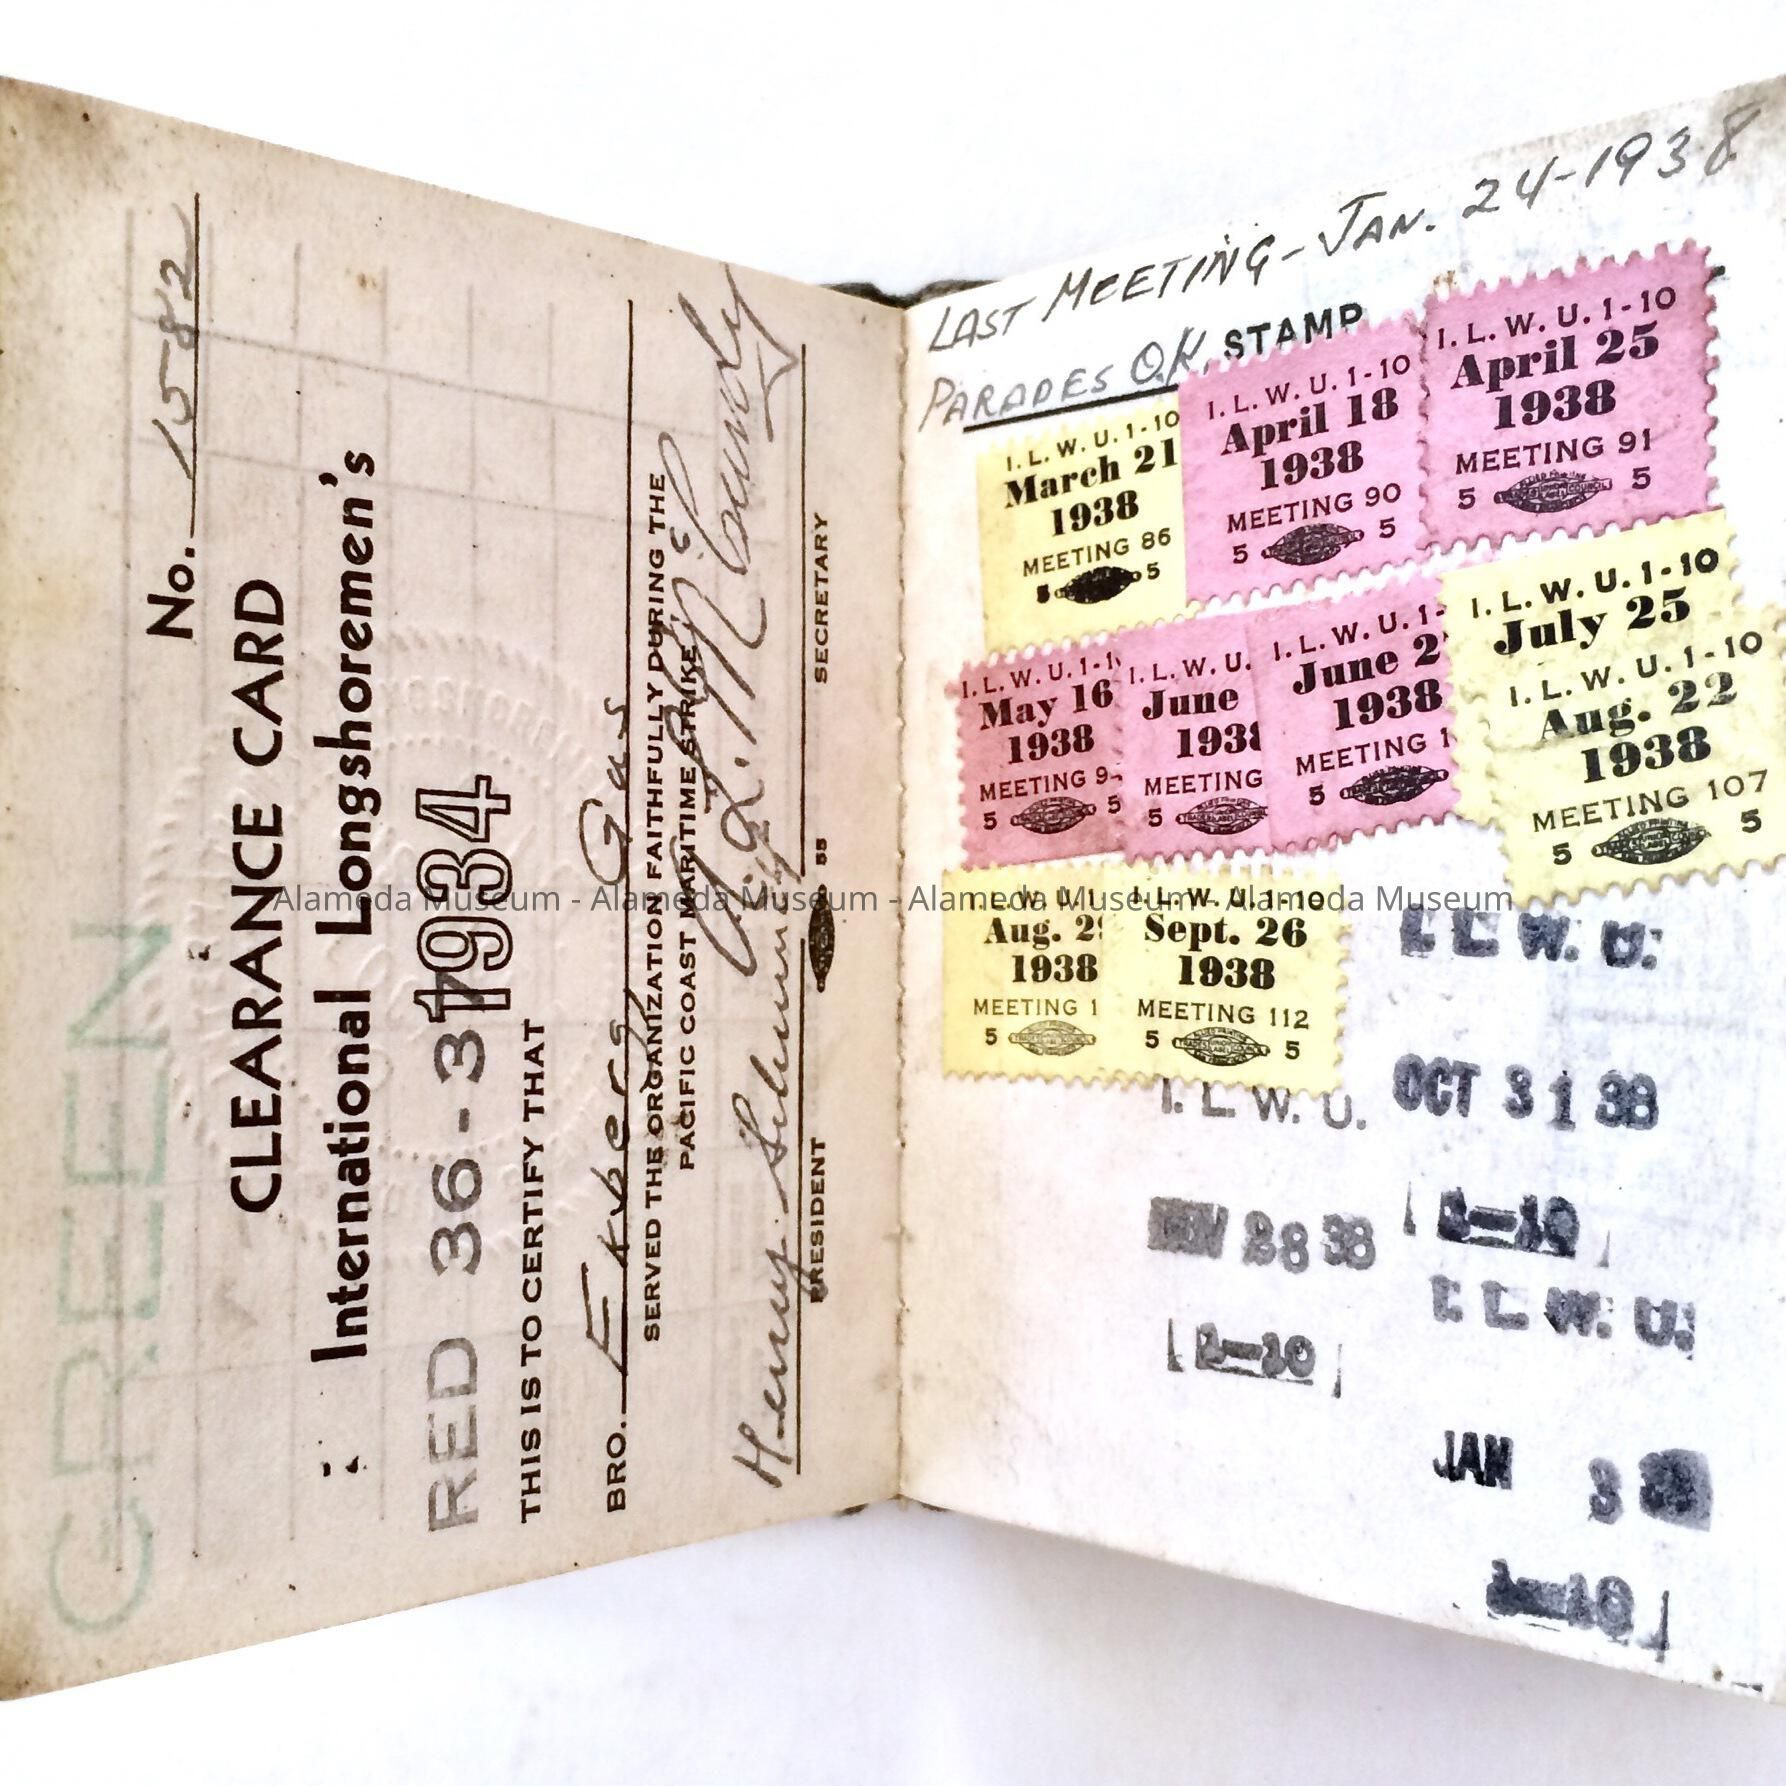 GREEN
No. 1582
CLEARANCE CARD
International Longshoremen's
RED 36-37
1934
THIS IS TO CERTIFY THAT
BRO. Ekberg, Gus
SERVED THE ORGANIZATION FAITHFULLY DURING THE
PACIFIC COAST MARITIME STRIKE
Henry Schumacher
PRESIDENT
55
SECRETARY
LAST MEETING - JAN. 24-1938
PARADES O.K. STAMP
I. L. W. U. 1-10
March 21
1938
MEETING 86
5 5
I. L. W. U. 1-10
April 18
1938
MEETING 90
5 5
I. L. W. U. 1-10
April 25
1938
MEETING 91
5 5
I. L. W. U. 1-1
May 16
1938
MEETING 9
5 5
I. L. W. U.
June
193
MEETING
5
I. L. W. U. 1-
June 2
1938
MEETING 1
5
I. L. W. U. 1-10
July 25
I. L. W. U. 1-10
Aug. 22
1938
MEETING 107
5 5
I. L. W. U. 1
Aug. 29
1938
MEETING 1
5
I. L. W. U. 1-10
Sept. 26
1938
MEETING 112
5 5
I. L. W. U.
OCT 31 38
1-10
I. L. W. U.
NOV 28 38
1-10
I. L. W. U.
JAN 3
1-10
Alameda Museum - Alameda Museum - Alameda Museum - Alameda Museum